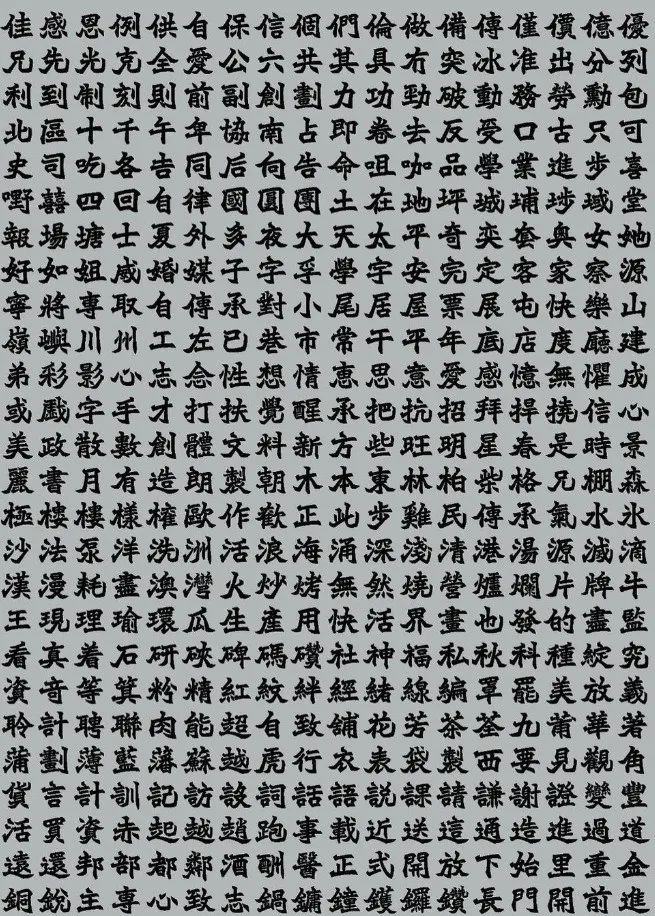 佳感恩例供自保信個們倫做備傳僅價億優
兄先光克全愛公六共其具冇突冰准出分列
利到制刻則前副創劃力功勁破動務勞勳包
北區十千午年協南占即卷去反受口古只可
史司吃各告同后向告命咀咖品學業進步喜
嘢囍四回自律國圓團土在地坪城埔埗域堂
報場塘士夏外多夜大天太平奇奕套與女她
好如姐威婚媒子字孚學宇安完定客家察源
寧將專取自傳承對小尾居屋票展屯快樂山
嶺嶼川州工左已巷市常干平年底店度廳建
弟彩影心志念性想情惠思意愛感憶無懼成
或戲字手才打扶覺醒承把抗招拜捍撓信心
美政散數創體文料新方些旺明星春是時景
麗書月有造朗製朝木本東林柏柴格兄棚森
極樓樓樣權歐作歡正此步雞民傳承氣水氹
沙法泵洋洗洲活浪海涌深淺清港湯源滅滴
漢漫耗盡澳灣火炒烤無然燒營爐爛片牌牛
王現理瑜環瓜生產用快活界畫也發的盡監
看真着石研砍碑碼鑽社神福私秋科種綻究
資音等箕粉精紅紋絆經緒線編罩罷美放義
聆計聘聯肉能超自致舖花芳茶荃九莆華著
蒲劃薄藍藩蘇越虎行衣表袋製西要見觀角
貨言計訓記訪設詞話語説課請謙謝證變豐
活買資赤起越趙跑事載近送這通造進過道
遠還邦部都鄰酒酬醫正式開放下始里重金
銅銳主專心致志鍋鏞鐘鑊鑼鑽長門開前進